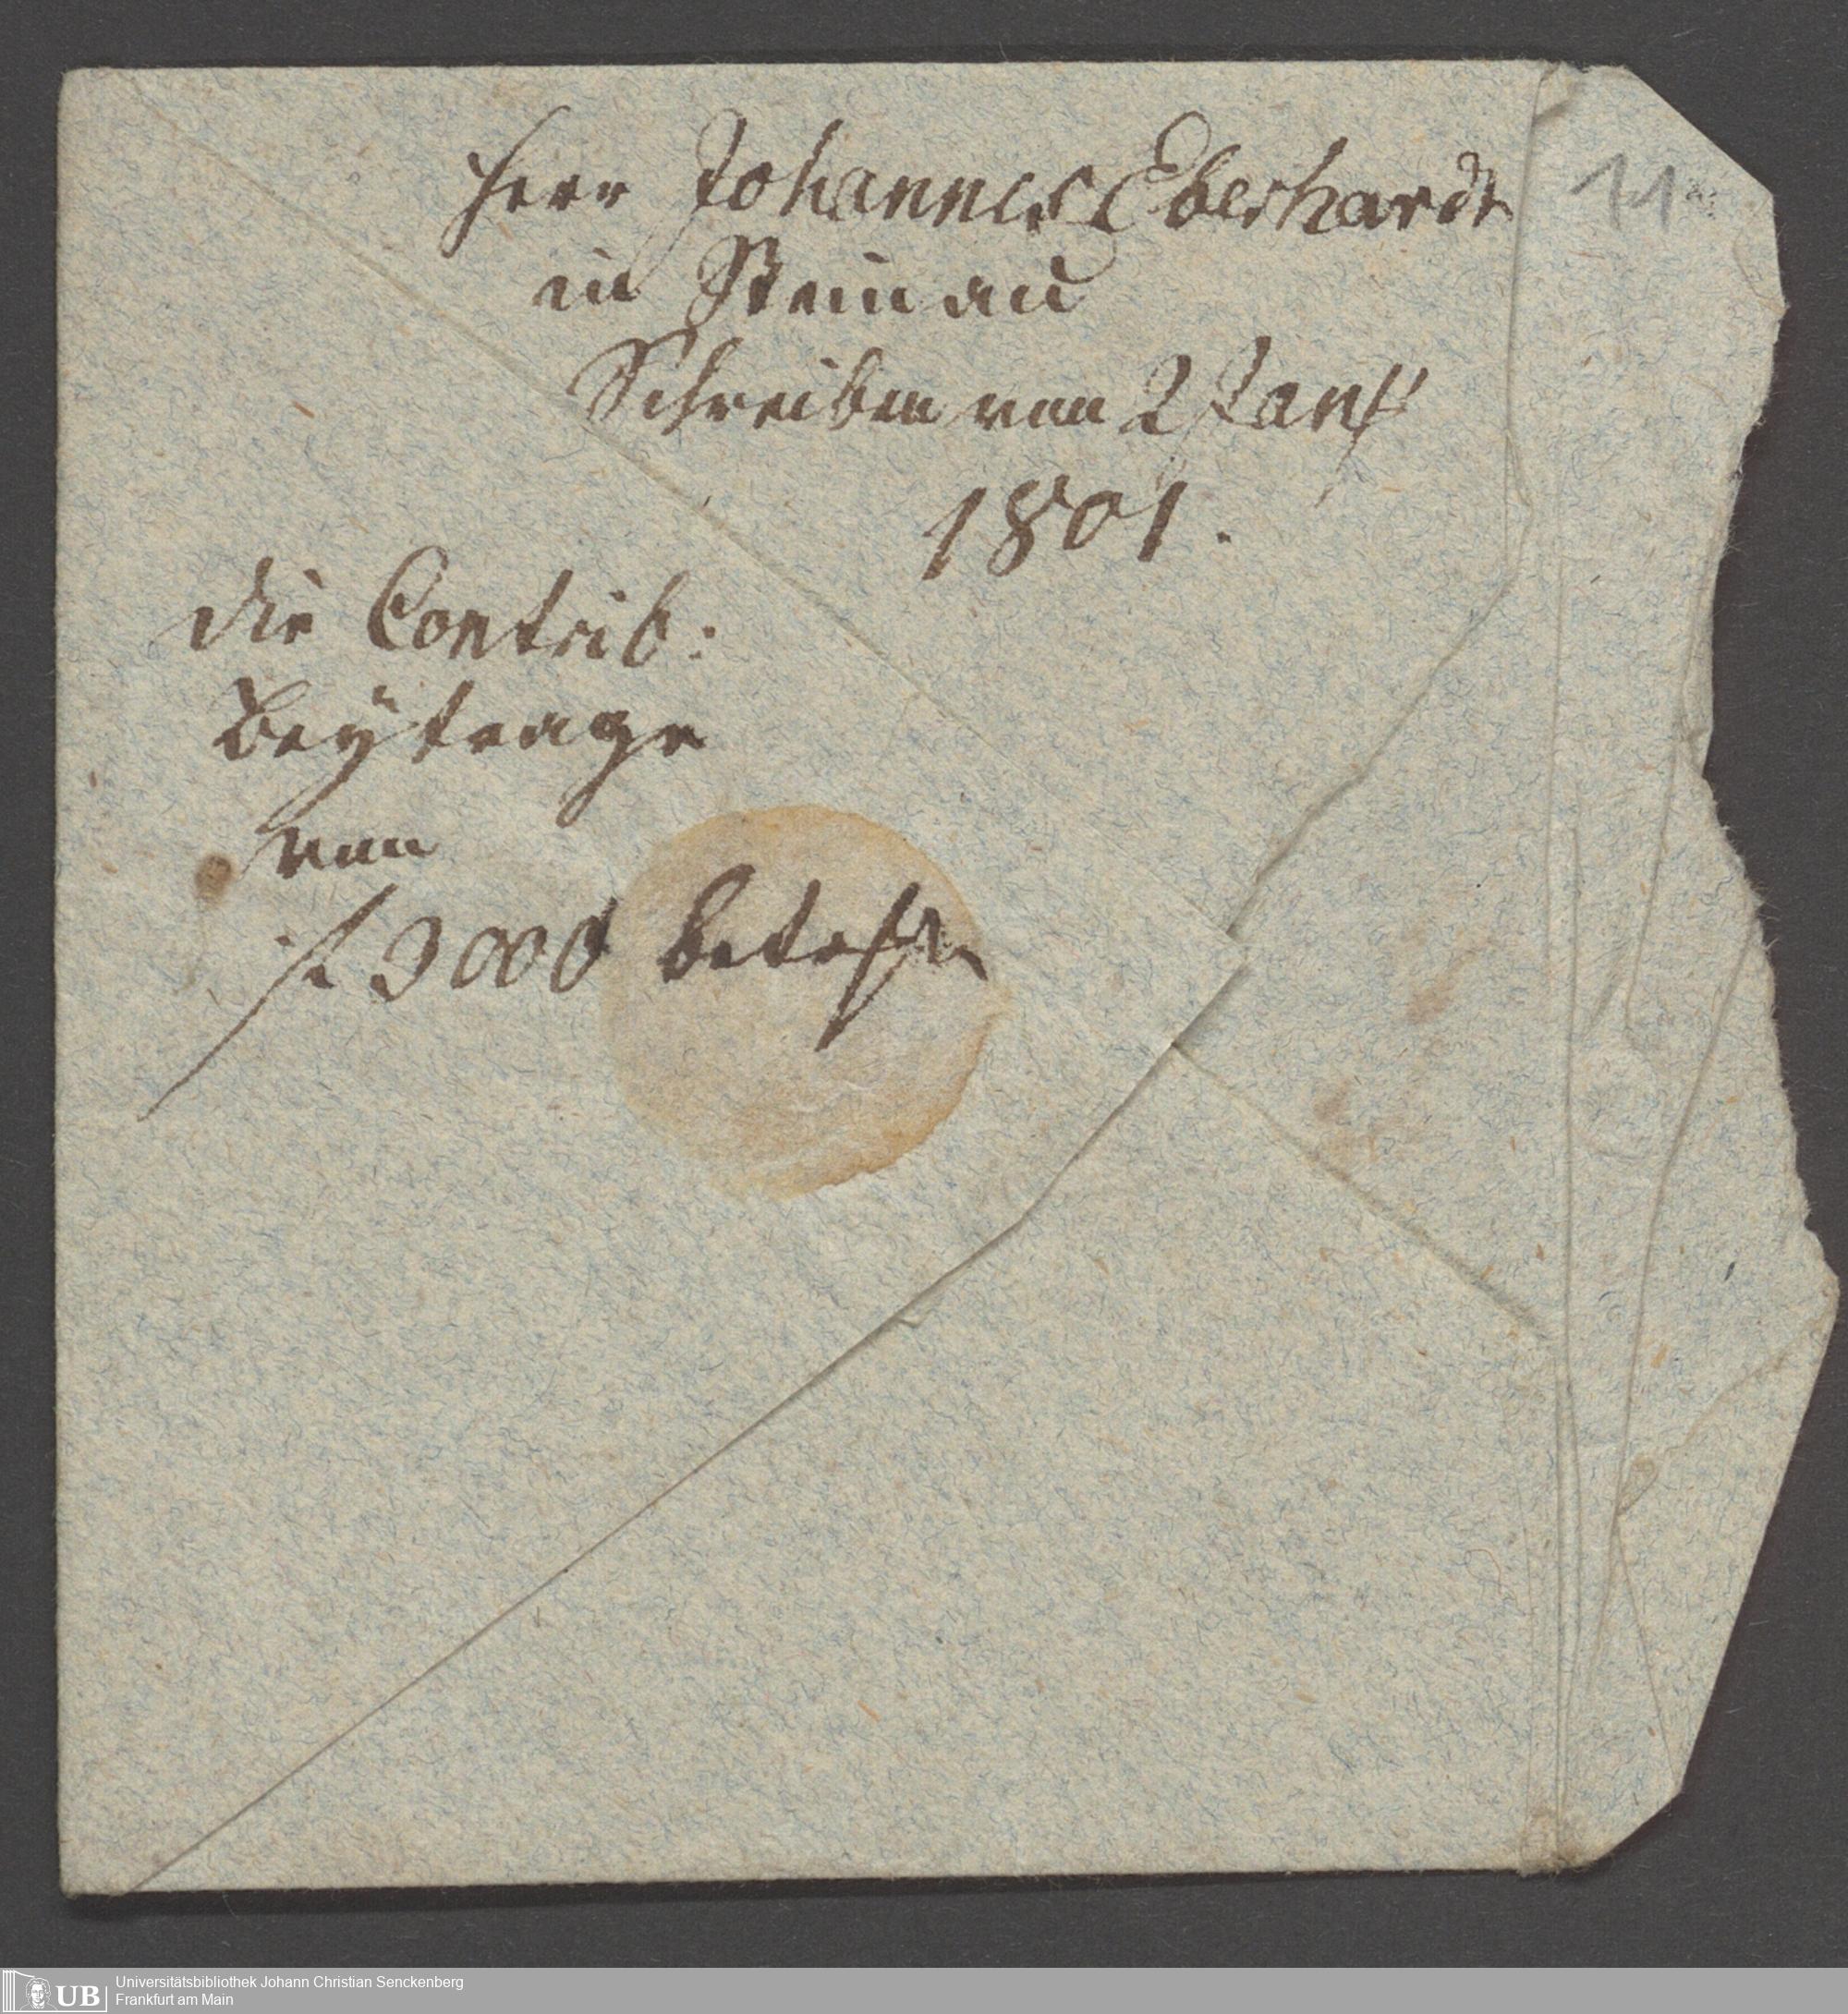 Herr Johannes Eberhardt
in Steinau
Schreiben vom 2 Jan
1801.
11
die Contrib:
Beÿtrage
von
f 3000 betrfn
UB
Universitätsbibliothek Johann Christian Senckenberg
Frankfurt am Main